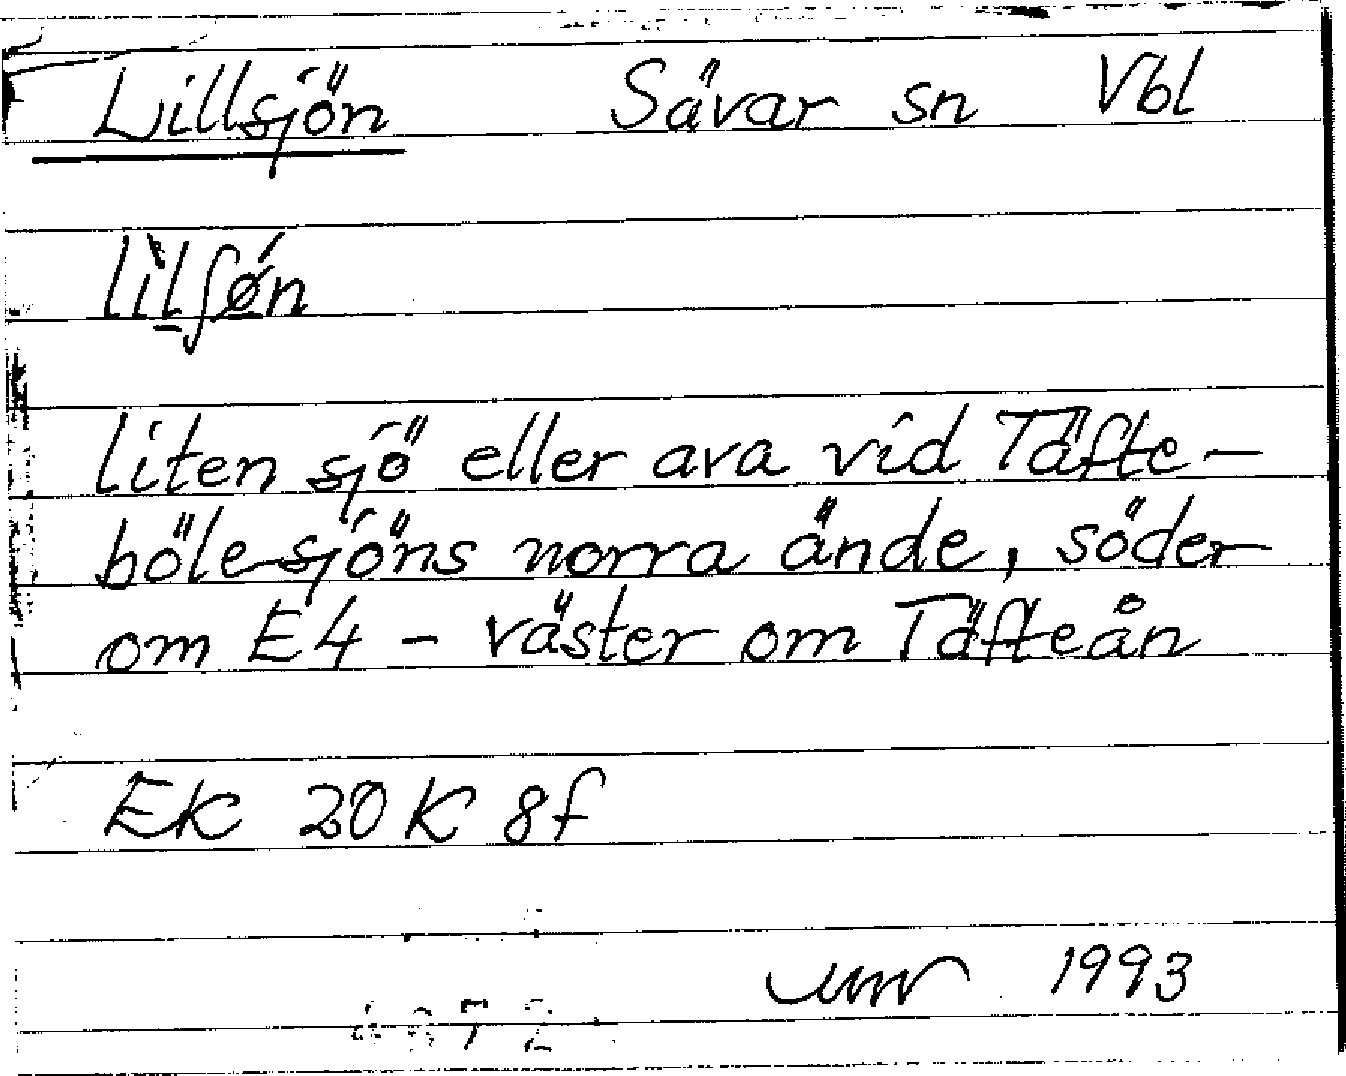 Lillsjön Sävar sn Vbl
lìlʃǿn
liten sjö eller ava vid Täfte-
bölesjöns norra ände, söder
om E4 - väster om Täfteån
EK 20K 8f
1993